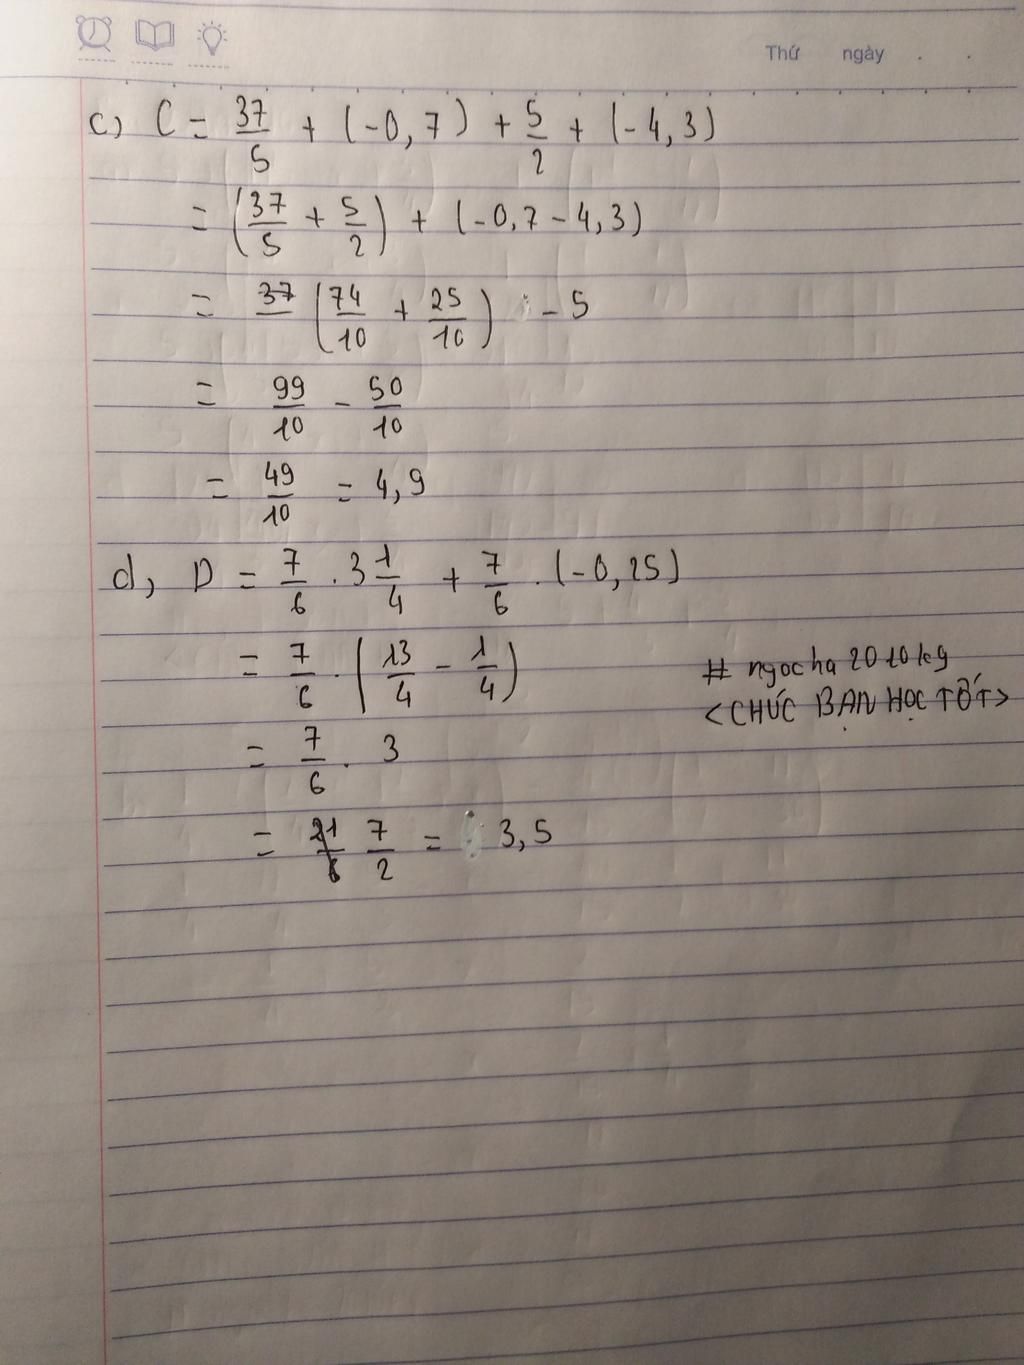 Thứ ngày . .
c) C = 37/5 + (-0,7) + 5/2 + (-4,3)
= (37/5 + 5/2) + (-0,7 - 4,3)
= 37 (74/10 + 25/10) - 5
= 99/10 - 50/10
= 49/10 = 4,9
d, D = 7/6 . 3 1/4 + 7/6 . (-0,25)
= 7/6 . (13/4 - 1/4)
# ngocha2010kg
<CHÚC BẠN HỌC TỐT>
= 7/6 . 3
= 21/6 7/2 = 3,5